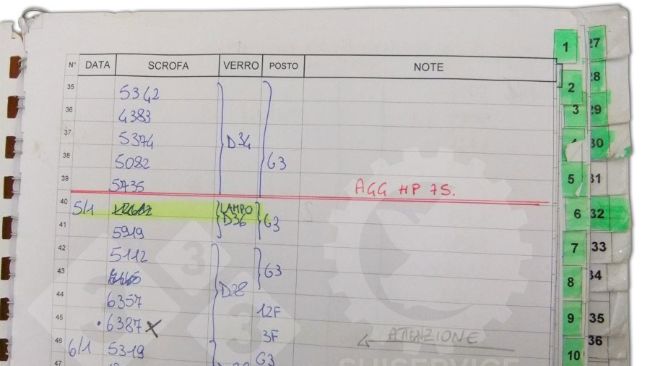 N° DATA SCROFA VERRO POSTO NOTE
35 5342
36 4383
37 5374 D34
38 5082 G3
39 5735 AGG HP 75.
40 5/1 LAMPO
41 5919 D36 G3
42 5112
43 G3
44 6357 D28
45 6387 x 12F
46 3F ATTENZIONE
6/1 5319 G3
SUISERVICE
333
1
2
3
4
5
6
7
8
9
10
27
28
29
30
31
32
33
34
35
36